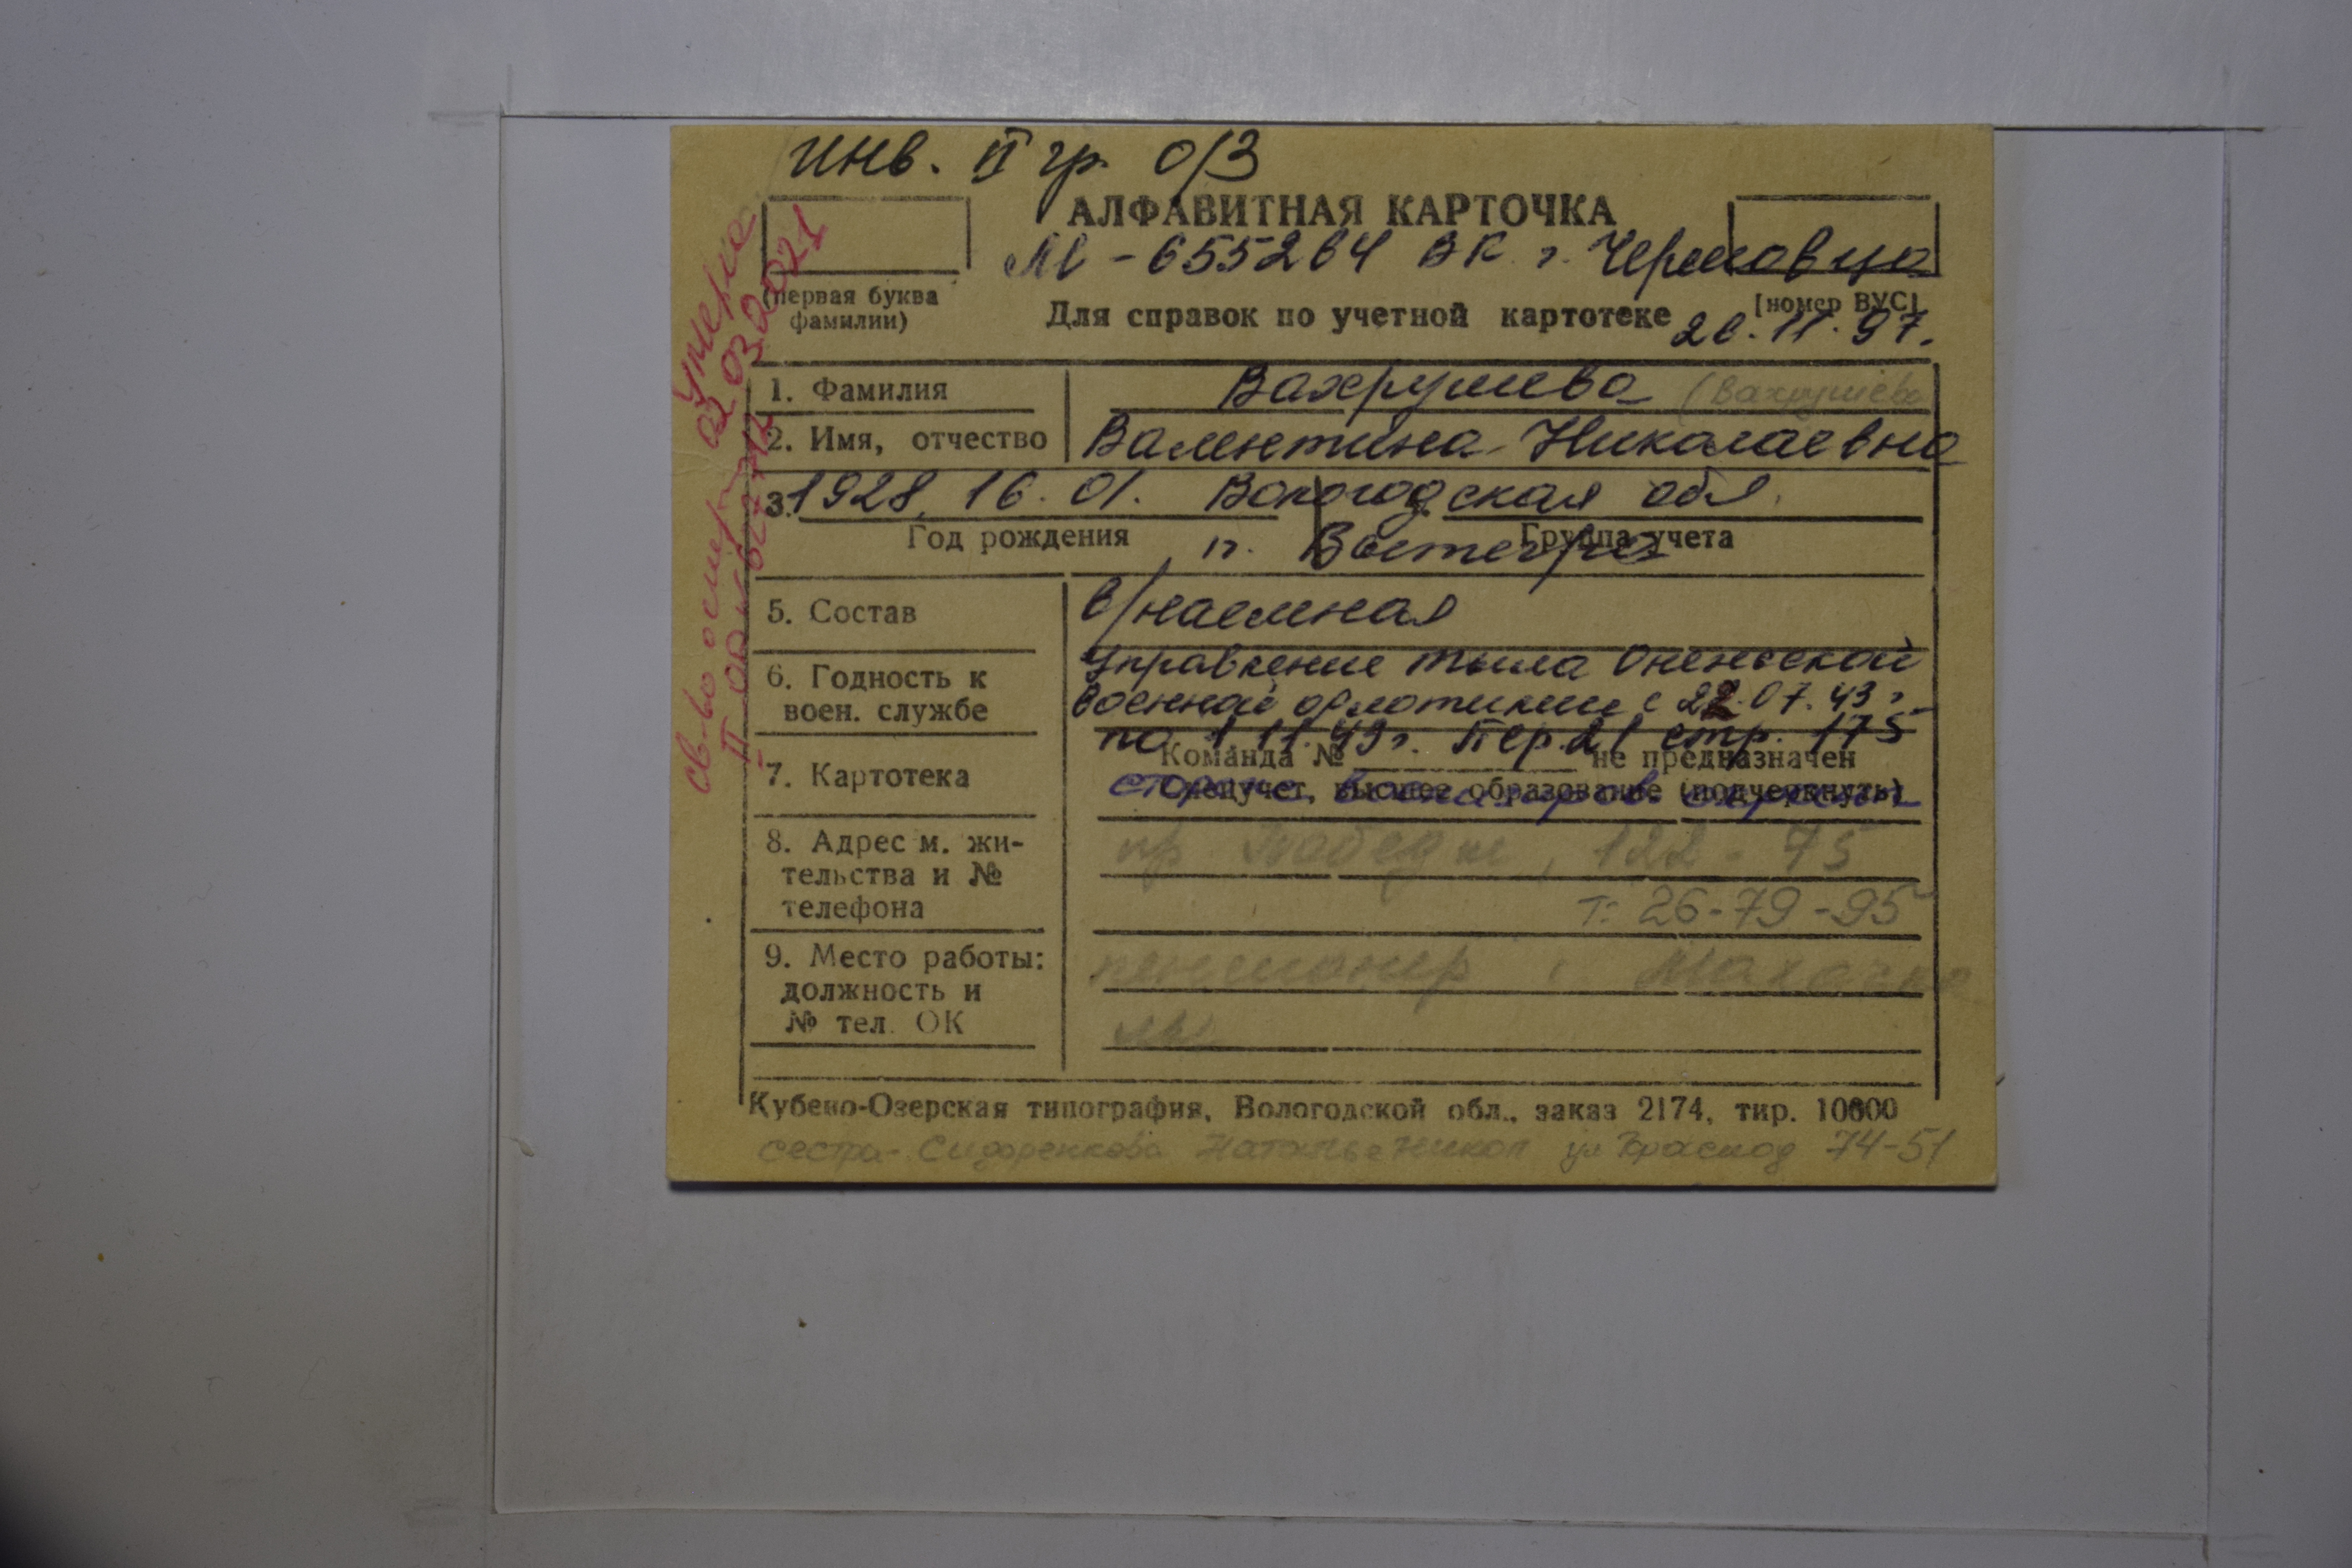 инв. II гр. о/з
АЛФАВИТНАЯ КАРТОЧКА
М - 655264 ВК г. Череповца
(первая буква
фамилии)
[номер ВУС]
Для справок по учетной картотеке
20.11.97.
умерла
02 03.2021
св-во о смерти
1. Фамилия Вахрушева (Вахрушева
2. Имя, отчество Валентина Николаевна
3. 1928, 16. 01. Вологодская обл.
Год рождения Группа учета
п.
5. Состав в/наемная
6. Годность к
воен. службе
Управление тыла Онежской
военной флотилии с 22.07.43 г.
по 1 11.43 г. Пер.21 стр. 175
7. Картотека
Команда № не предназначен
Спецучет, высшее образование (подчеркнуть)
8. Адрес м. жи-
тельства и №
телефона
пр. Победы, 122 - 75
т: 26-79-95
9. Место работы:
должность и
№ тел. ОК
пенсионер
Кубено-Озерская типография, Вологодской обл., заказ 2174, тир. 10000
сестра - Сидоренкова Наталья Никол ул Краснод 74-51